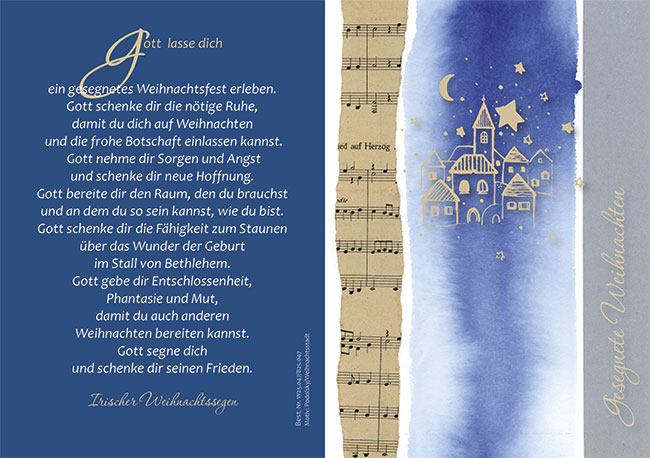 Gott lasse dich
ein gesegnetes Weihnachtsfest erleben.
Gott schenke dir die nötige Ruhe,
damit du dich auf Weihnachten
und die frohe Botschaft einlassen kannst.
Gott nehme dir Sorgen und Angst
und schenke dir neue Hoffnung.
Gott bereite dir den Raum, den du brauchst
und an dem du so sein kannst, wie du bist.
Gott schenke dir die Fähigkeit zum Staunen
über das Wunder der Geburt
im Stall von Bethlehem.
Gott gebe dir Entschlossenheit,
Phantasie und Mut,
damit du auch anderen
Weihnachten bereiten kannst.
Gott segne dich
und schenke dir seinen Frieden.
Irischer Weihnachtssegen
Motiv: Podolsky/Weihnachtsstadt
ied auf Herzog
Gesegnete Weihnachten